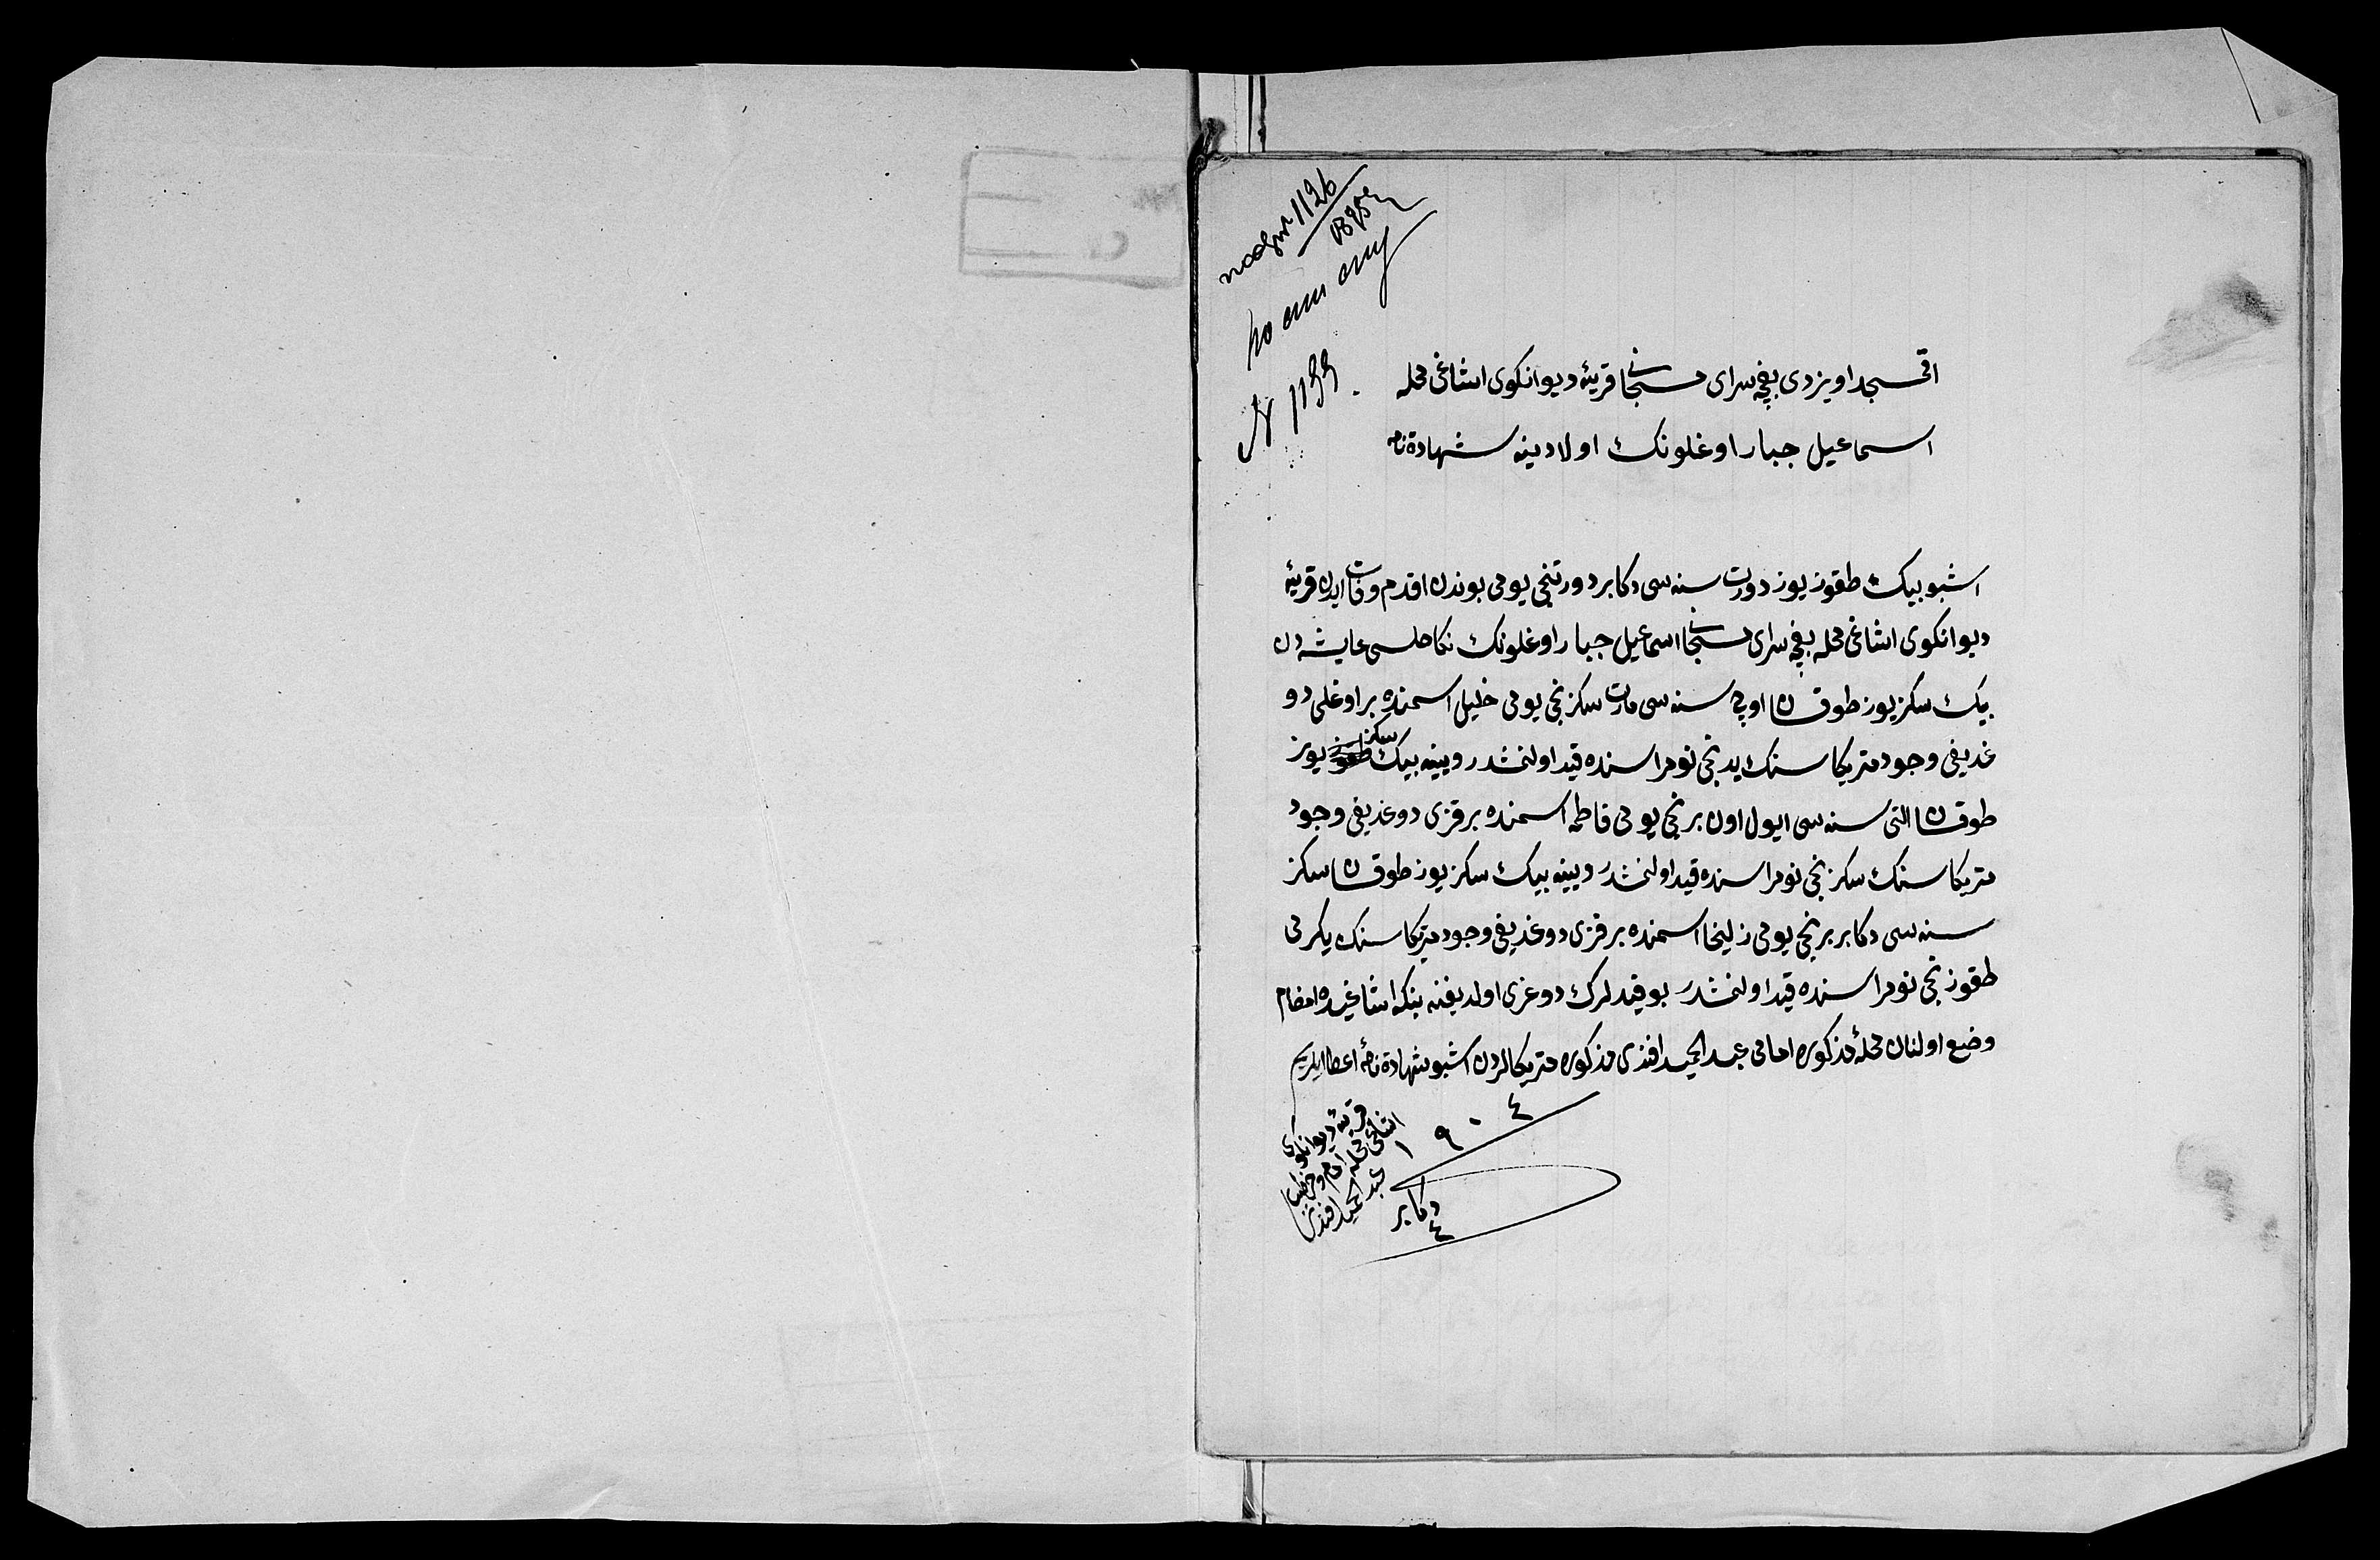 № 1199
اقمسجد اویزدی بغچه سرای سنجاغی قریهٔ دیوانکوی اشاغی محله
اسماعیل جبار اوغلونک اولادینه شهادةنامه
اشبو بیک طقوز یوز دورت سنه سی دکابر دورتنجی یومی بوندن اقدم وفات ایدن قریهٔ
دیوانکوی اشاغی محله بغچه سرای سنجاغی اسماعیل جبار اوغلونک نکاحلسی عایشه دن
بیک سکز یوز طوقسان اوچ سنه سی مارت سکزنجی یومی خلیل اسمنده بر اوغلی دو
غدیغی وجود متریکاسنک یدنجی نومراسنده قید اولنمشدر وینه بیک سکز یوز
طوقسان التی سنه سی ایول اون برنجی یومی فاطمه اسمنده بر قزی دوغدیغی وجود
متریکاسنک سکزنجی نومراسنده قید اولنمشدر وینه بیک سکز یوز طوقسان سکز
سنه سی دکابر برنجی یومی زلیخا اسمنده بر قزی دوغدیغی وجود متریکاسنک یکرمی
طقوزنجی نومراسنده قید اولنمشدر بو قیدلرک دوغری اولدیغنه بنکه اشاغیده امضام
وضع اولنان محلهٔ مذکوره امامی عبد الحمید افندی مذکوره متریکالردن اشبو شهادةنامهٔ اعطا ایلدیم
١٩٠٤
دکابر
٤
قریهٔ دیوانکوی
اشاغی محله امام وخطیبی
عبد الحمید افندی